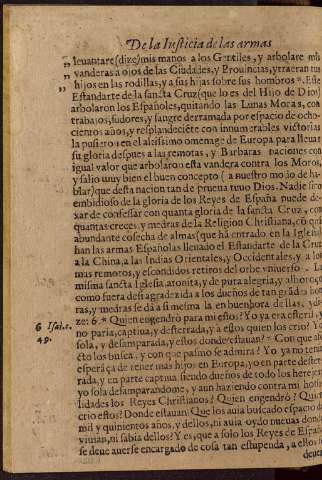 De la Iusticia de las armas
„ leuantare (dize) mis manos a los Gentiles, y arbolare mis
„ vanderas a ojos de las Ciudades, y Prouincias, y traeran tus
„ hijos en las rodillas, y a sus hijas sobre sus hombros". Este
Estandarte de la sancta Cruz (que lo es del Hijo de Dios)
arbolaron los Españoles, quitando las Lunas Moras, con
trabajos, sudores, y sangre derramada por espacio de ocho-
cientos años, y resplandeciẽte con innumerables victorias
la pusieron en el altissimo omenage de Europa para lleuar
su gloria despues a las remotas, y Barbaras naciones con
igual valor que arbolaron esta vandera contra los Moros,
y salio muy bien el buen concepto (a nuestro modo de ha-
blar) que desta nacion tan de prueua tuuo Dios. Nadie si no
embidioso de la gloria de los Reyes de España puede de-
xar de confessar con quanta gloria de la sancta Cruz, con
quantas creces, y medras de la Religion Christiana, cõ que
abundante cosecha de almas (que ha entrado en la Iglesia)
han las armas Españolas lleuado el Estandarte de la Cruz
a la China, a las Indias Orientales, y Occidentales, y a los
mas remotos, y escondidos retiros del orbe vniuerso. La
misma sancta Iglesia, atonita, y de pura alegria, y alboroço
como fuera desagradezida a los dueños de tan grãdes hon
ras, y medras se dà a si mesma la en buenhora dellas, y di-
ze: 6. * Quien engendrò para mi estos? Yo ya era esteril, y
6 Isai. c.
49.
no paria, captiua, y desterrada, y a estos quien los criò? Yo
sola, y desamparada, y estos donde estauan? * Con que afe-
cto los busca, y con que pasmo se admira? Yo ya no tenia
esperãça de tener mas hijos en Europa, yo en parte dester
rada, y en parte captiua siendo dueños de todo los herejes,
yo sola desamparandome, y aun haziendo contra mi hosti
lidades los Reyes Christianos? Quien engendrò? Quien
crio estos? Donde estauan? Que los auia buscado espacio de
mil y quinientos años, y dellos, ni auia oydo nueuas donde
viuian, ni sabia dellos? Y es, que a solo los Reyes de España
se deue auerse encargado de cosa tan estupenda, a ellos les
deuen